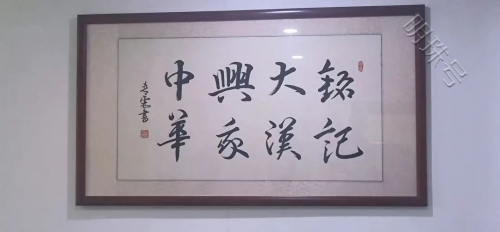 銘記
大漢
興我
中華
明珠号